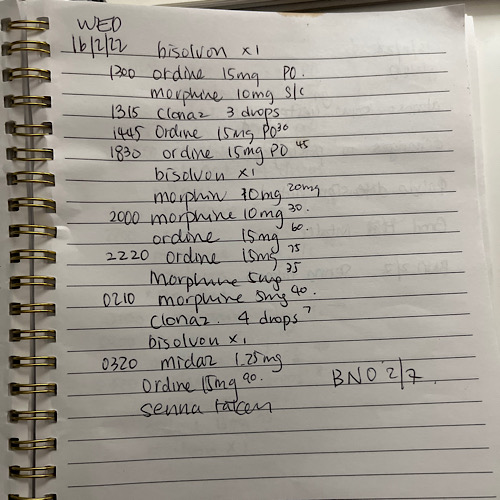 WED
16/2/22 bisolvon x1
1300 ordine 15mg PO.
morphine 10mg S/C
1315 Clonaz 3 drops
1445 Ordine 15mg PO 30
1830 ordine 15mg PO 45
bisolvon x1
morphin 10mg 20mg
2000 morphine 10mg 30.
ordine 15mg 60.
2220 ordine 15mg 75
Morphine 5mg 35
0210 morphine 5mg 40.
Clonaz. 4 drops 7
bisolvon x1
0320 midaz 1.25mg
Ordine 15mg 90. BNO 2/7.
senna taken